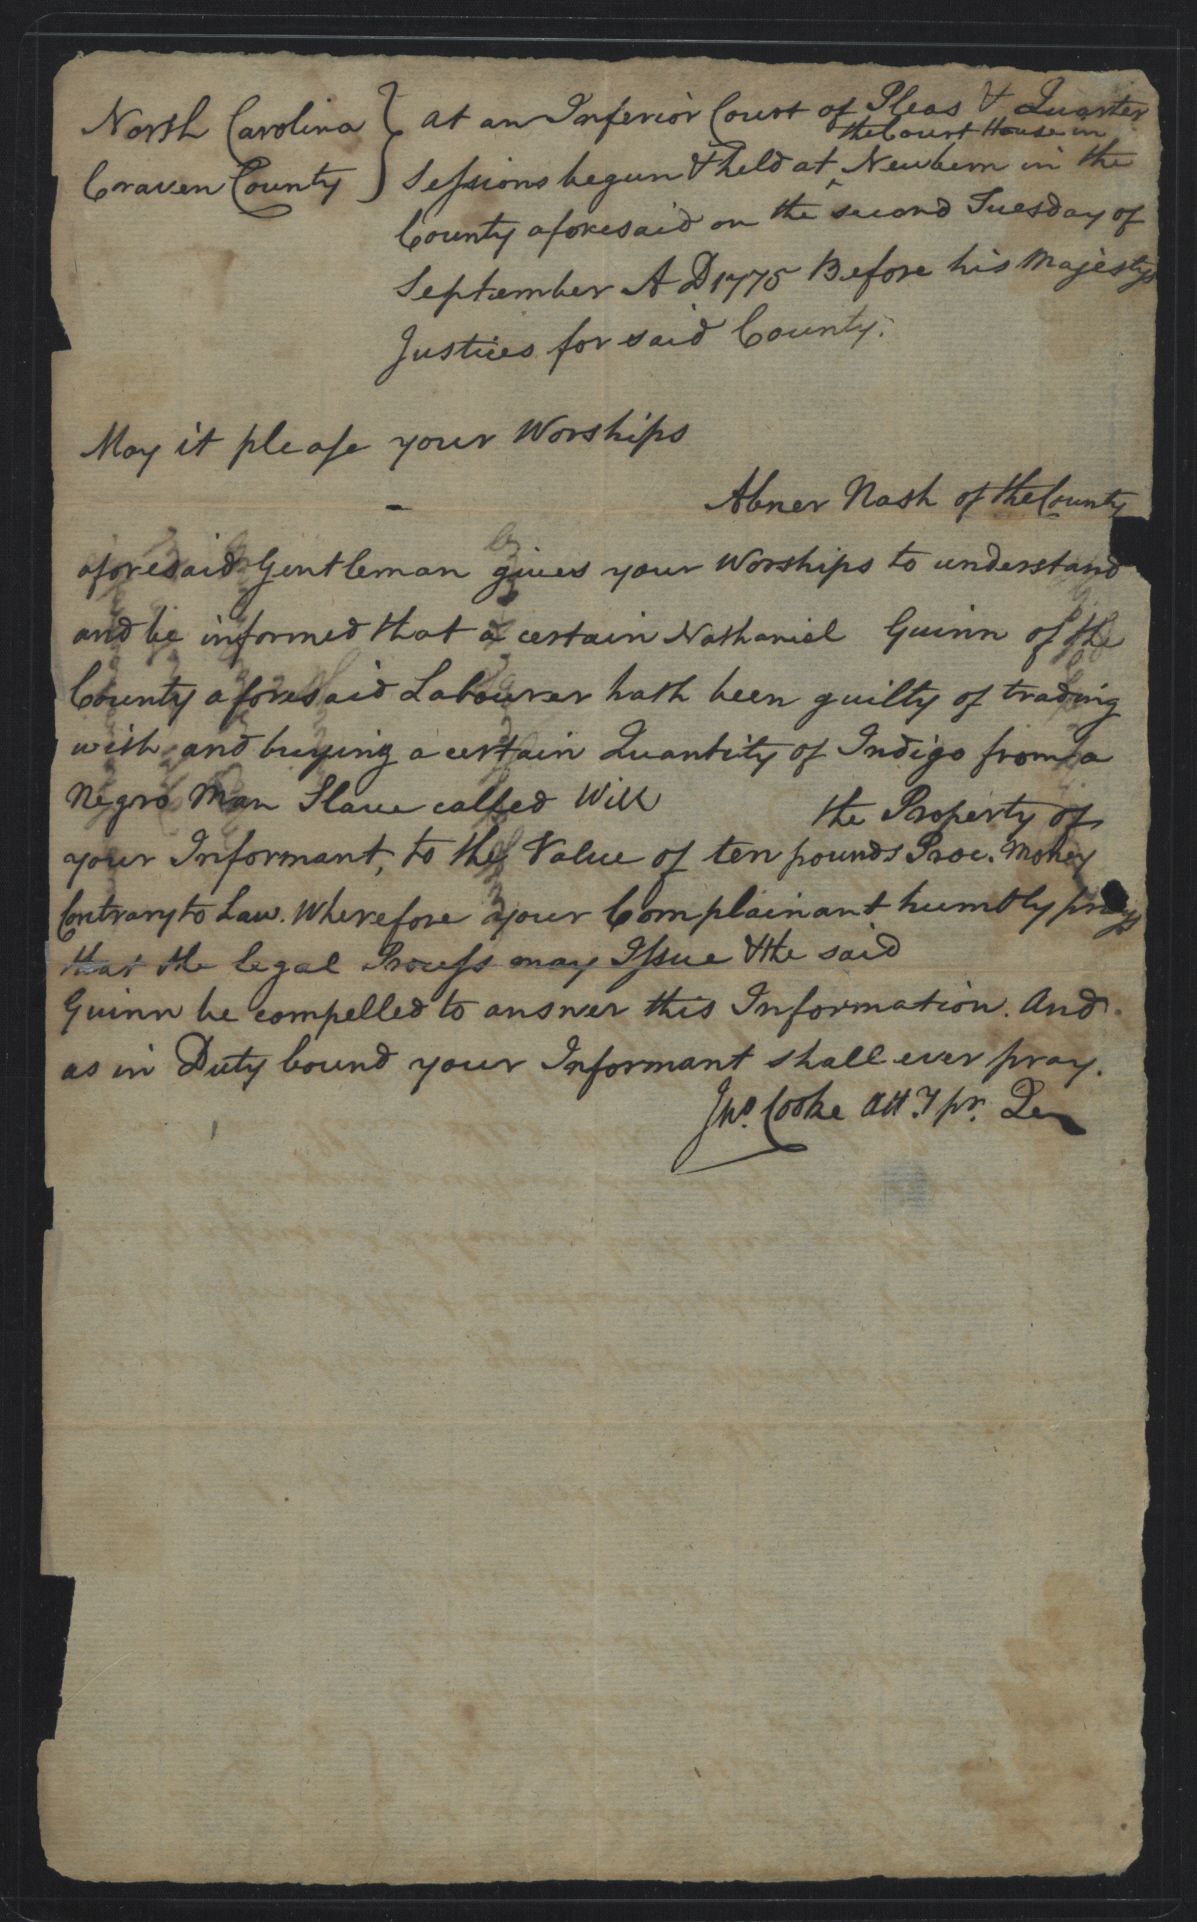 North Carolina } at an Inferior Court of Pleas & Quarter
the Court House in
Craven County } Sessions begun & held at ^ Newbern in the
County aforesaid on the second Tuesday of
September A D 1775 Before his Majestys
Justices for said County.
May it please your Worships
Abner Nash of the County
aforesaid Gentleman gives your Worships to understand
and be informed that a certain Nathaniel Guinn of the
County aforesaid Labourer hath been guilty of trading
with and buying a certain Quantity of Indigo from a
Negro Man Slave called Will the Property of
your Informant, to the Value of ten pounds Proc. Money
Contrary to Law. Wherefore your Complainant humbly prays
that the legal Process may Issue & the said
Guinn be compelled to answer this Information. And
as in Duty bound your Informant shall ever pray.
Jno. Cooke Att.y pr. Quer